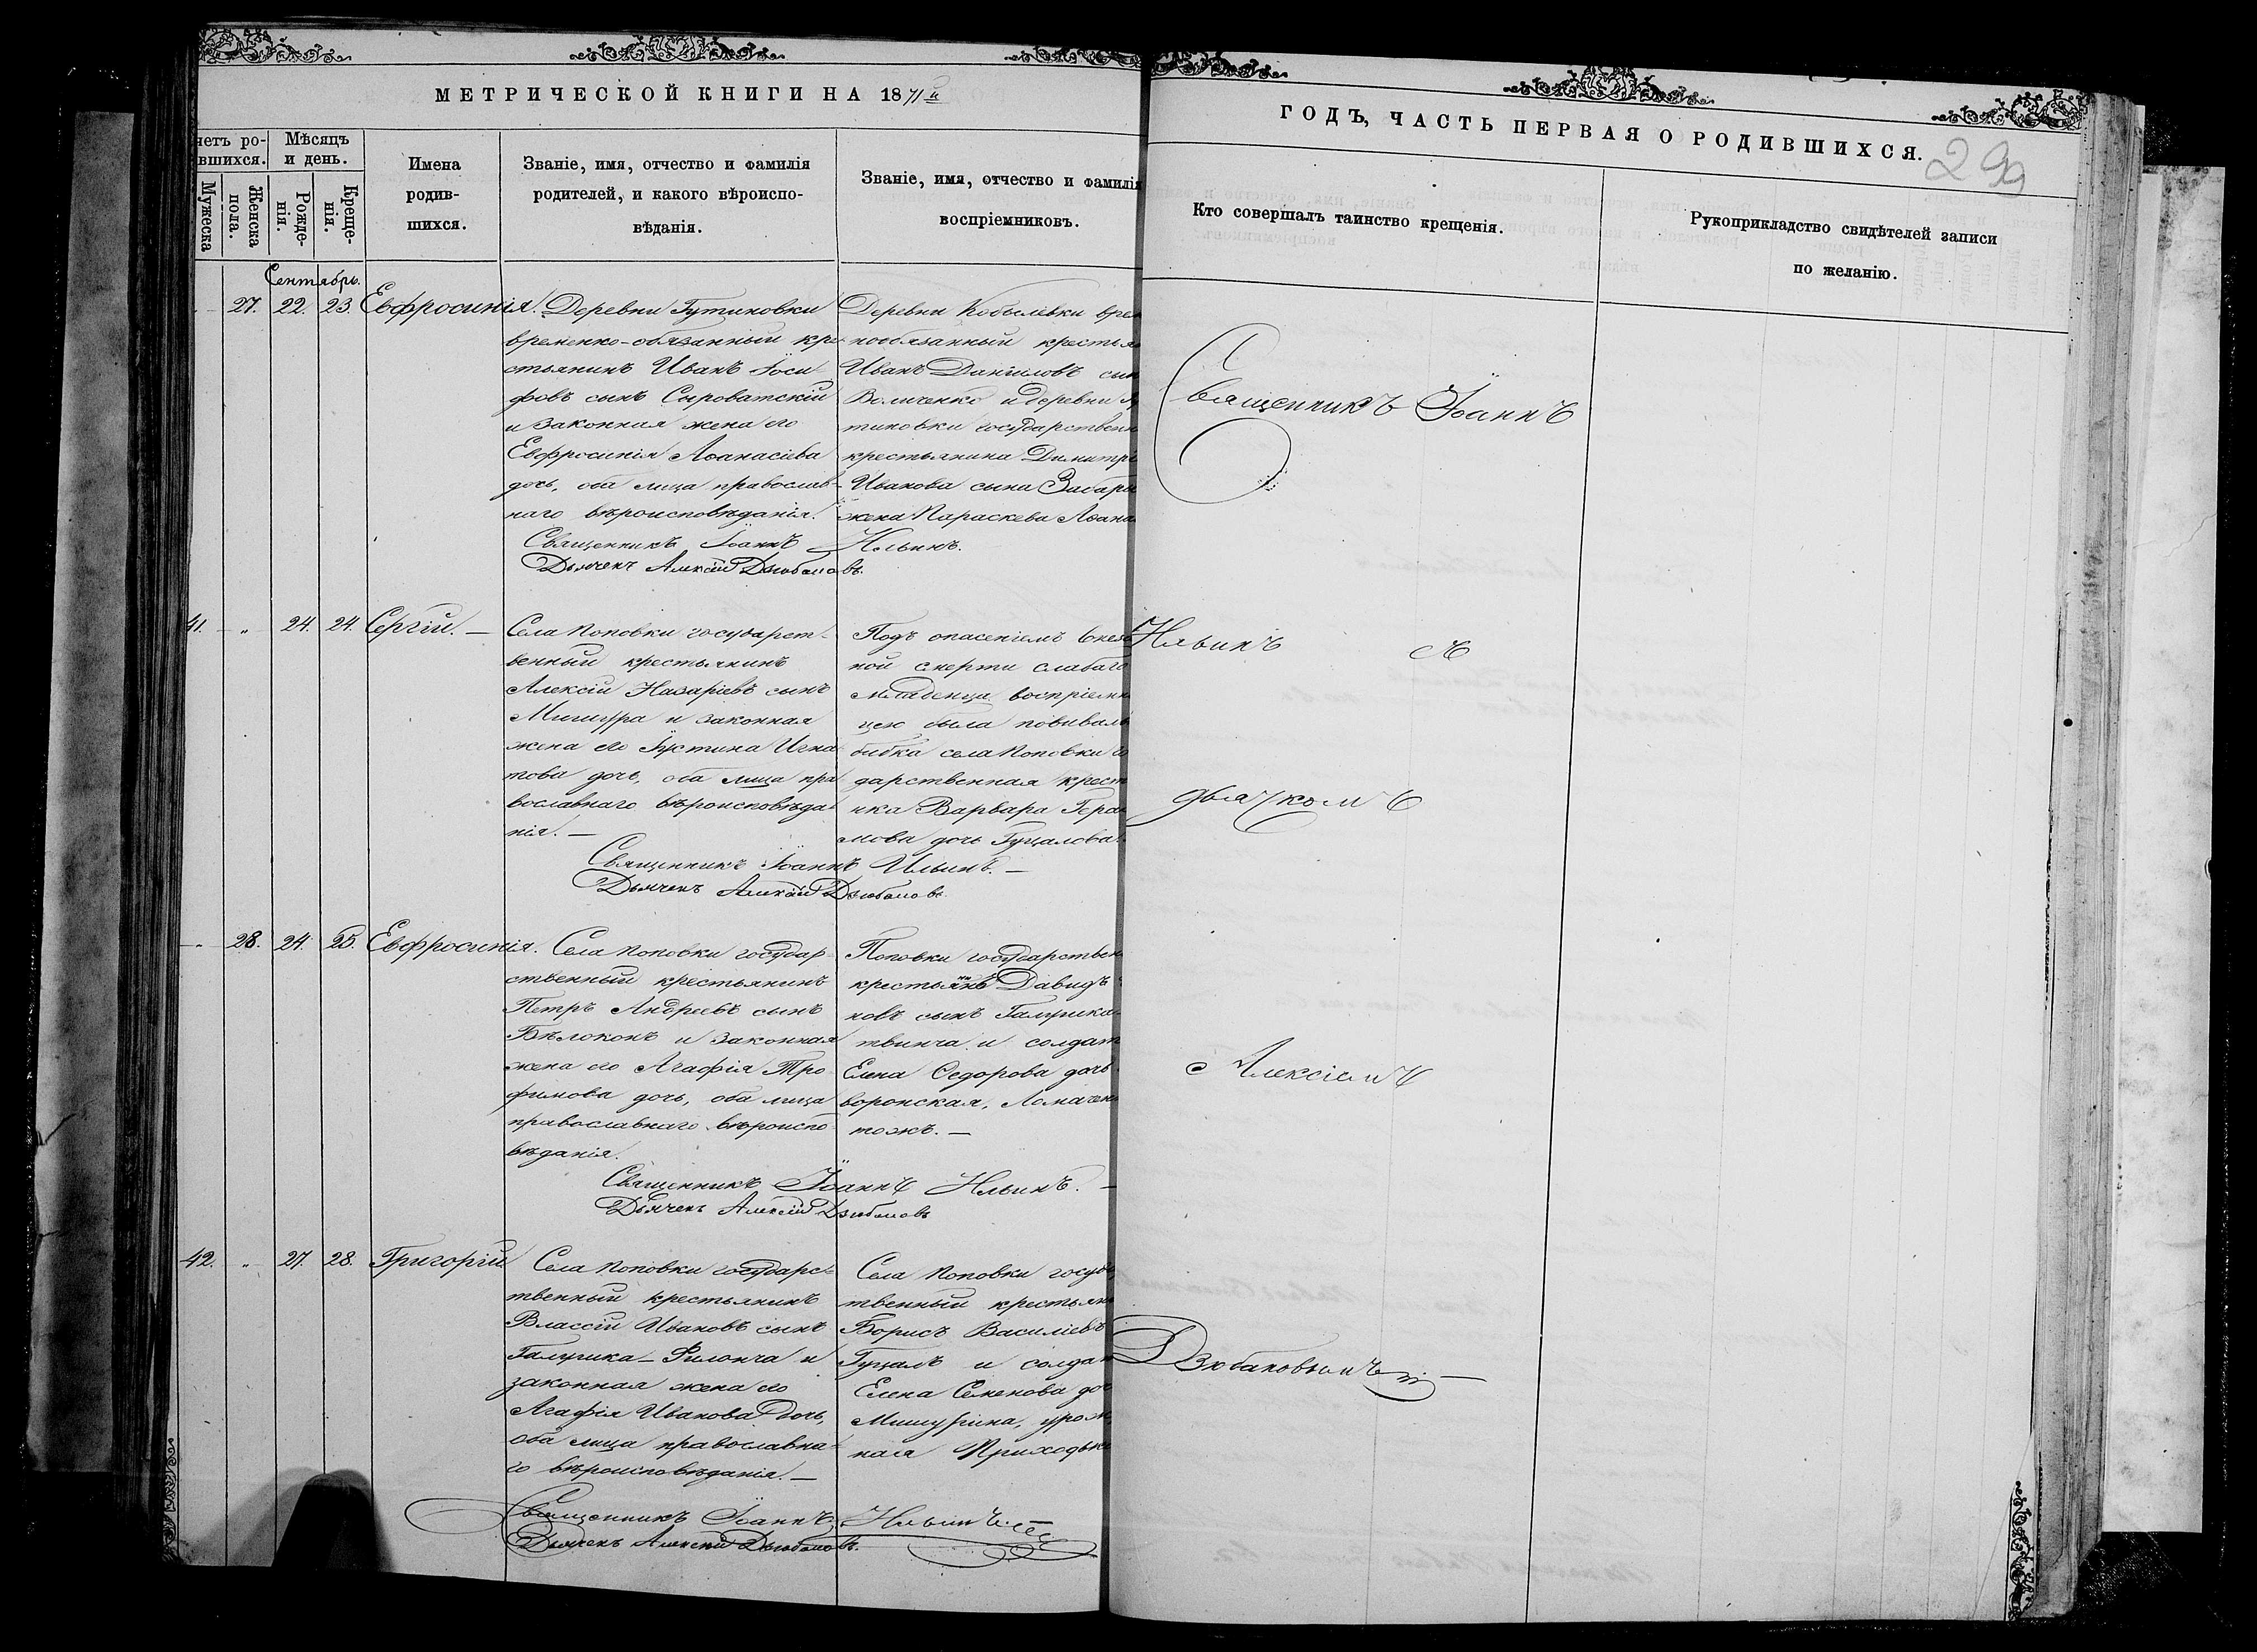 МЕТРИЧЕСКОЙ КНИГИ НА 1871й
ГОДЪ, ЧАСТЬ ПЕРВАЯ О РОДИВШИХСЯ.
29
четъ ро-
вшихся.
Мужеска
Женска
пола.
Мѣсяцъ
и день.
Рожде-
нія.
Креще-
нія.
Имена
родив-
шихся.
Званіе, имя, отчество и фамилія
родителей, и какого вѣроиспо-
вѣданія.
Званіе, имя, отчество и фамилія
воспріемниковъ.
Кто совершалъ таинство крещенія.
Рукоприкладство свидѣтелей записи
по желанію.
Сентябрь.
27. 22. 23. Евфросинія.
Деревни Гутиновки
временно-обязанный кре-
стьянинъ Иванъ Іоси
фовъ сынъ Сыроватскій
и законная жена его
Евфросинія Аѳанасіева
дочь, оба лица православ-
наго вѣроисповѣданія.
Деревни Кобылевки врем
нообязанный крестья
Иванъ Даніиловъ сын
Величенко и деревни Гу
тиновки государствен
крестьянина Димитрі
Иванова сына
жена Параскева Аѳана
Священникъ Іоаннъ Ильинъ.
Дьячекъ Алексій Дзюбановъ.
41. „ 24. 24. Сергій. —
Села Поповки государст-
венный крестьянинъ
Алексій Назаріевъ сынъ
и законная
жена его Іустина Игна
това дочь, оба лица пра
вославнаго вѣроисповѣда
нія. —
Подъ опасеніемъ внеза
ной смерти слабаго
младенца воспріемни
цею была повиваль
бабка села Поповки го
дарственная крест
нка Варвара Гера
мова дочь Гуцалова.
Священникъ Іоаннъ Ильинъ. —
Дьячекъ Алексій Дзюбановъ.
„ 28. 24. 25. Евфросинія.
Села Поповки государ-
ственный крестьянинъ
Петръ Андреевъ сынъ
Бѣлоконь и законная
жена его Агафія Тро
фимова дочь, оба лица
православнаго вѣроиспо
вѣданія.
Поповки государствен
крестьянинъ Давидъ
новъ сынъ Галушка
и солдат
Елена Ѳедорова дочь
воронская, Ломачен
тожъ. —
Священникъ Іоаннъ Ильинъ. —
Дьячекъ Алексій Дзюбановъ
42. „ 27. 28. Григорій
Села Поповки государс-
твенный крестьянинъ
Власій Ивановъ сынъ
Галушка- и
законная жена его
Агафія Иванова дочь,
оба лица православна-
го вѣроисповѣданія. —
Села Поповки госуда
твенный крестьян
Борисъ Василіевъ
Гуцалъ и солдат
Елена Семенова до
урож
ная Приходьк
Священникъ Іоаннъ Ильинъ.
Дьячекъ Алексій Дзюбановъ.
Священникъ Іоаннъ
Ильинъ съ
дьячкомъ
Алексіемъ
Дзюбановымъ —